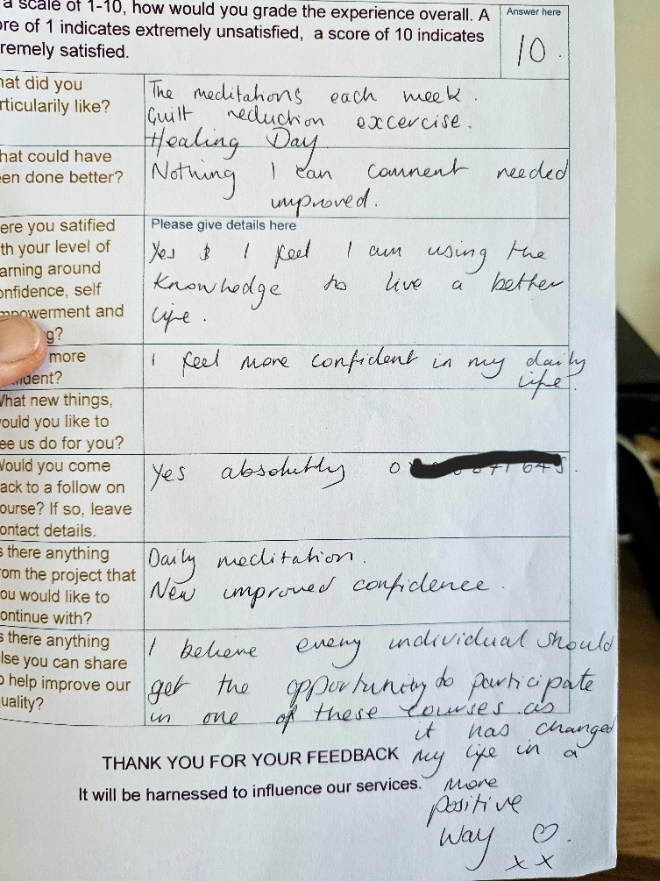 a scale of 1-10, how would you grade the experience overall. A
ore of 1 indicates extremely unsatisfied, a score of 10 indicates
remely satisfied.
Answer here
10.
hat did you
rticularily like?
The meditations each week.
Guilt reduction excercise.
Healing Day
hat could have
en done better?
Nothing I can comment needed
improved.
ere you satified
th your level of
arning around
onfidence, self
mpowerment and
g?
Please give details here
Yes & I feel I am using the
Knowledge to live a better
life.
more
ident?
I feel more confident in my daily
life.
What new things,
would you like to
ee us do for you?
Would you come
ack to a follow on
ourse? If so, leave
ontact details.
Yes absolutly
s there anything
om the project that
ou would like to
ontinue with?
Daily meditation.
New improved confidence.
s there anything
lse you can share
o help improve our
uality?
I believe every individual should
get the opportunity to participate
in one of these courses as
it has changed
my life in a
more
positive
way ♡.
x x
THANK YOU FOR YOUR FEEDBACK
It will be harnessed to influence our services.